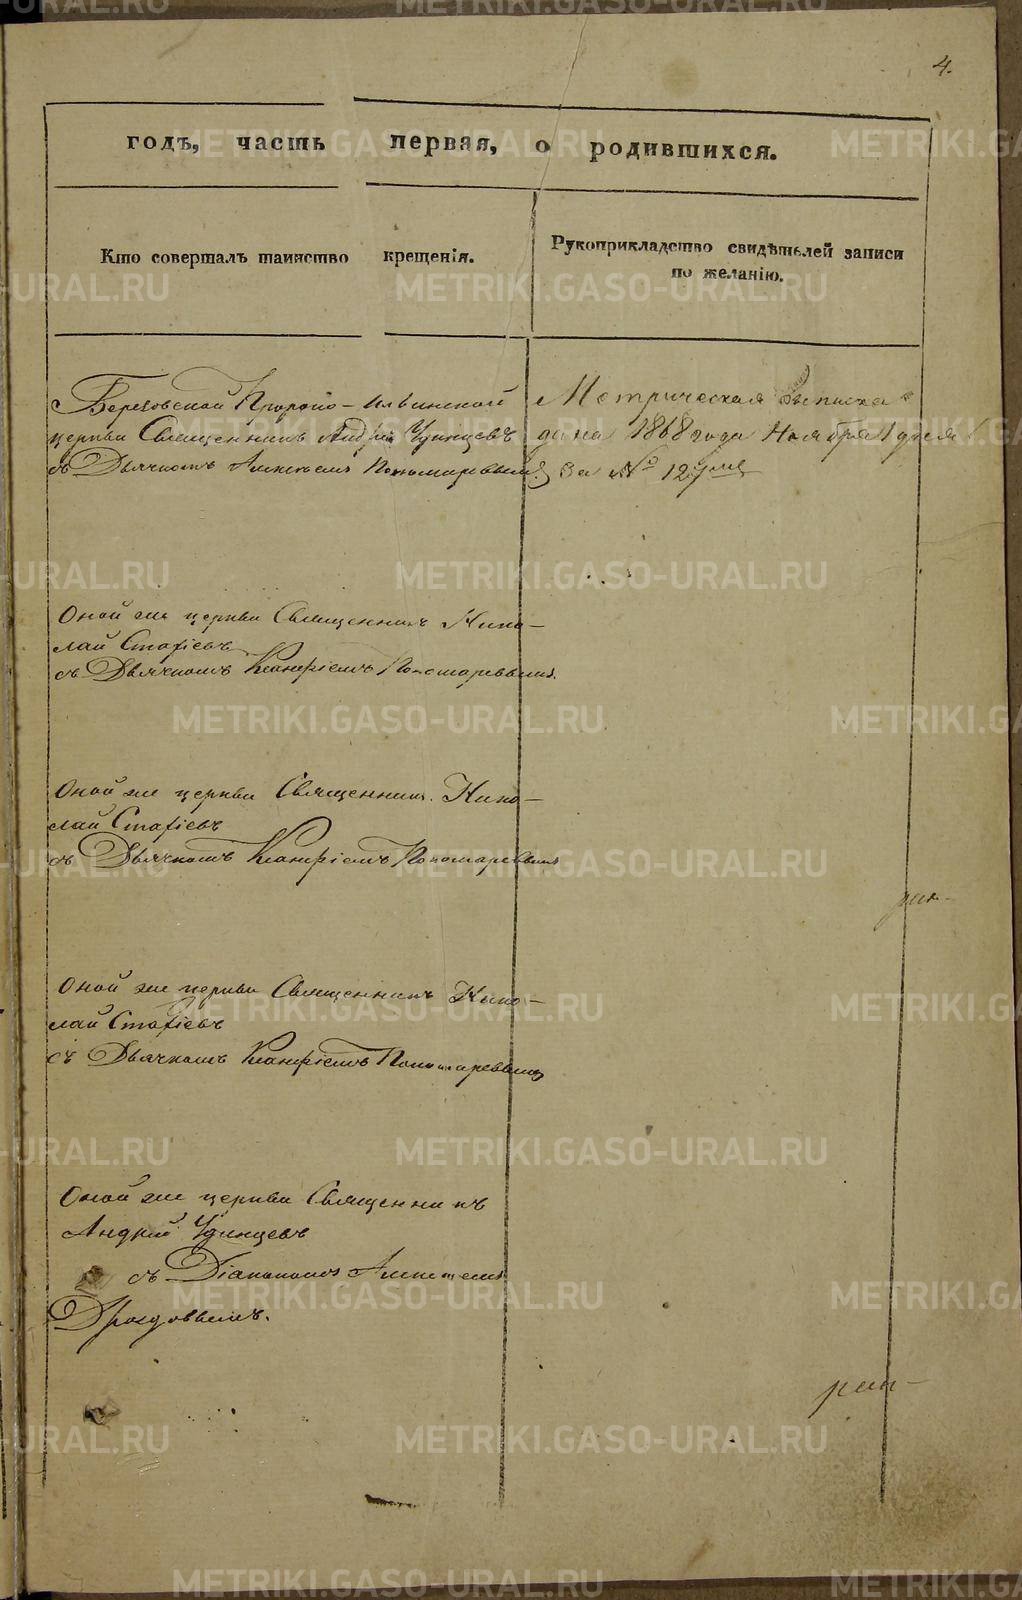 4.
годъ, часть первая, о родившихся.
Кто совершалъ таинство крещенія.
Рукоприкладство свидѣтелей записи
по желанію.
Березовской Пророко-Ильинской
церкви Священникъ Андрей Удинцевъ
съ Дьячкомъ Алексѣемъ Пономаревымъ
Метрическая выписка
дана 1868 года Ноября 1 дня
За № 127
Оной же церкви Священникъ Нико-
лай Стафіевъ
съ Дьячкомъ Пономаревымъ.
Оной же церкви Священникъ Нико-
лай Стафіевъ
съ Дьячкомъ Пономаревымъ
Оной же церкви Священникъ Нико-
лай Стафіевъ
съ Дьячкомъ Пономаревымъ
Оной же церкви Священникъ
Андрей Удинцевъ
съ Діакономъ Алексѣемъ
Дроздовымъ.
METRIKI.GASO-URAL.RU